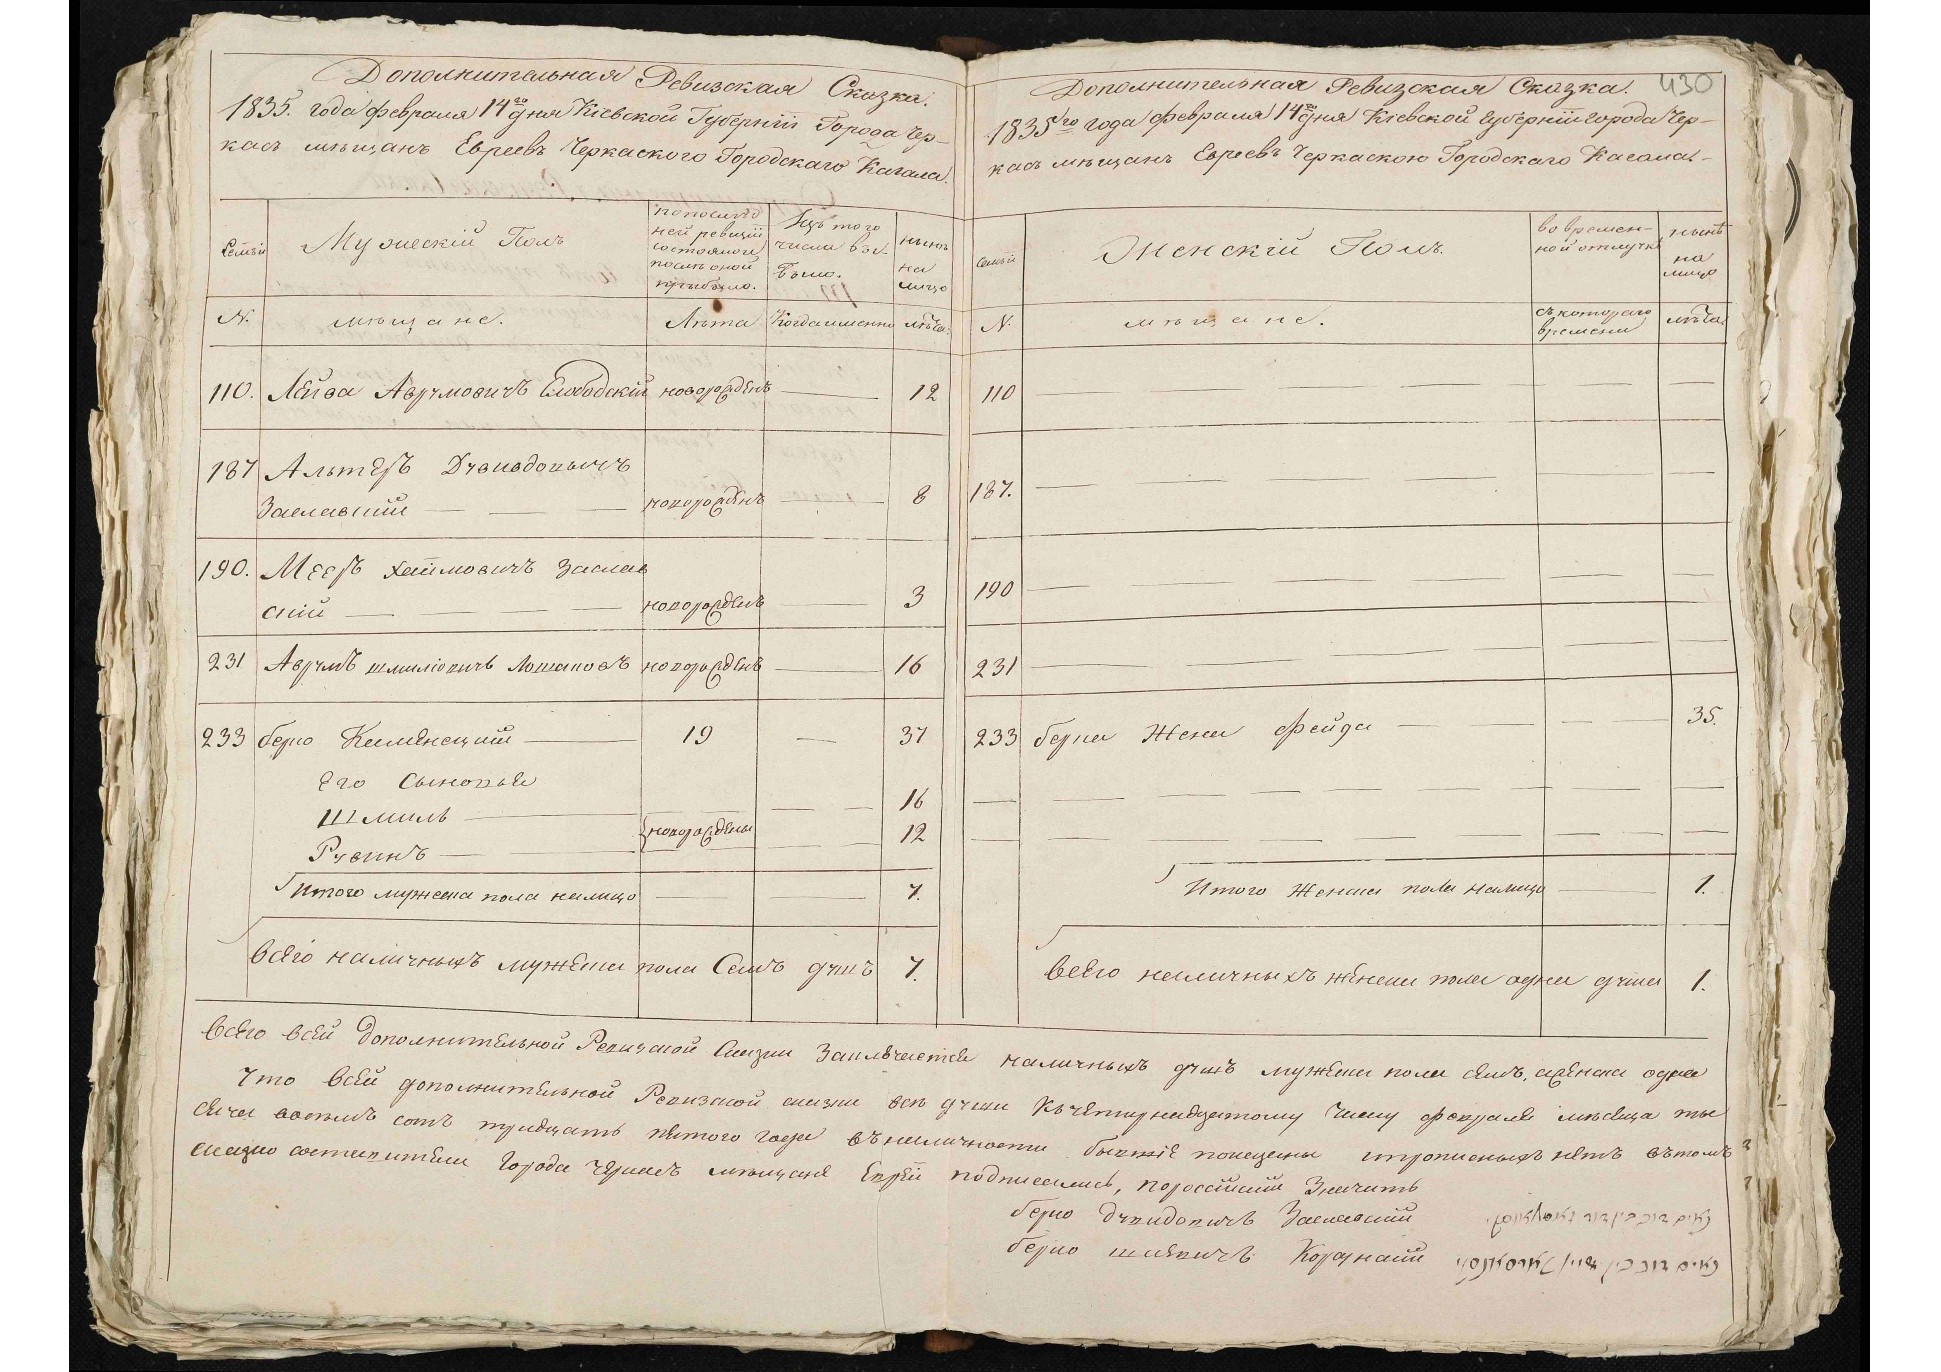 Дополнительная Ревизская Сказка.
1835. года февраля 14го дня Кіевской Губерніи Города Чер-
касъ мѣщанъ Евреевъ Черкаского Городскаго Кагала.
Семьи
Мужескій Полъ
по послед
ней ревизіи
состояло и
послѣ оной
прибыло.
Изъ того
числа выбыло.
нынѣ
на
лицо
N.
мѣщане.
Лѣта
Когда именно
лѣта.
110. Лейва Аврумовичъ Слободскій новорожденъ 12
187 Альтеръ Дувидовичъ
Заславскій новорожденъ 8
190. Мееръ Хаимовичъ Заслав
скій новорожденъ 3
231 Аврумъ Шмиліовичъ новорожденъ 16
233 Берко Каменецкий 19 37
Его Сыновья
Шмиль 16
Рувинъ новорождены 12
Итого мужеска пола налицо 7.
Всего наличныхъ мужеска пола Семъ душъ 7.
430
Дополнительная Ревизская Сказка.
1835го года февраля 14го дня Кіевской Губерніи города Чер-
касъ мѣщанъ Евреевъ Черкаского Городскаго Кагала.
Семьи
Женскій Полъ.
во времен-
ной отлучкѣ
нынѣ
на
лицо
N.
мѣщане.
съ котораго
времени
лѣта.
110
187.
190
231
233 Берка Жена Фейда 35.
Итого Женска пола налицо 1.
Всего наличныхъ женска пола одна душа 1.
Всего всей дополнительной Ревизской Сказки Заключается наличныхъ душъ мужеска пола семъ, женска одна
Что всей дополнительной Ревизской сказки всѣ души къ четырнадцатому числу февраля мѣсяца ты
сяча восемъ сотъ тридцать пятого года въ наличности бывшіе помещены и прописныхъ нетъ въ томъ
сказко составители Города Черкасъ мѣщане Евреи подписались, по россійски Значитъ
Берко Дувидовичъ Заславский
Берко